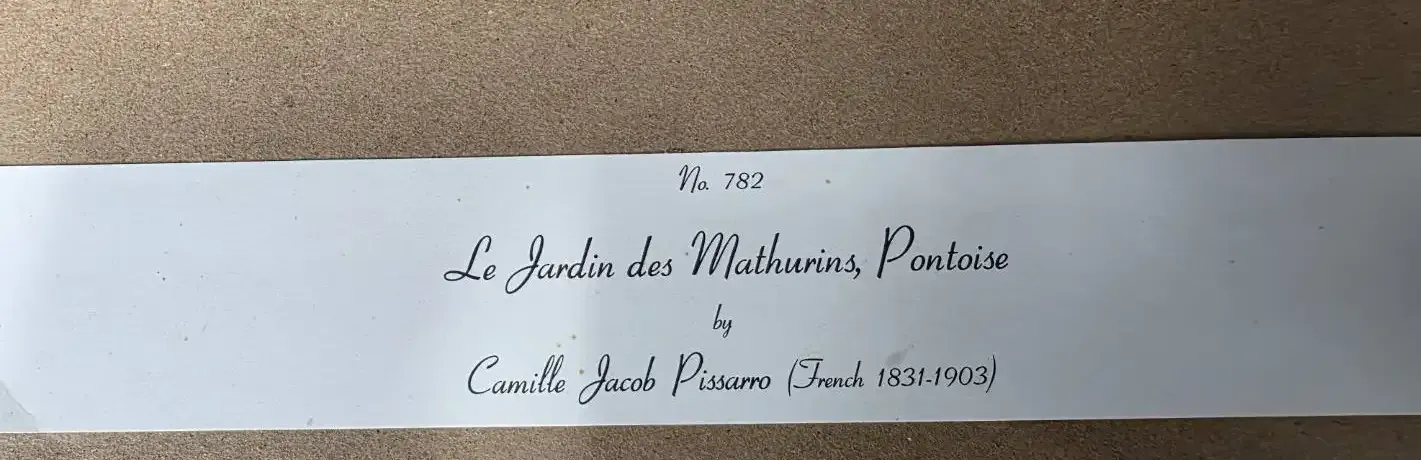 No. 782
Le Jardin des Mathurins, Pontoise
by
Camille Jacob Pissarro (French 1831-1903)